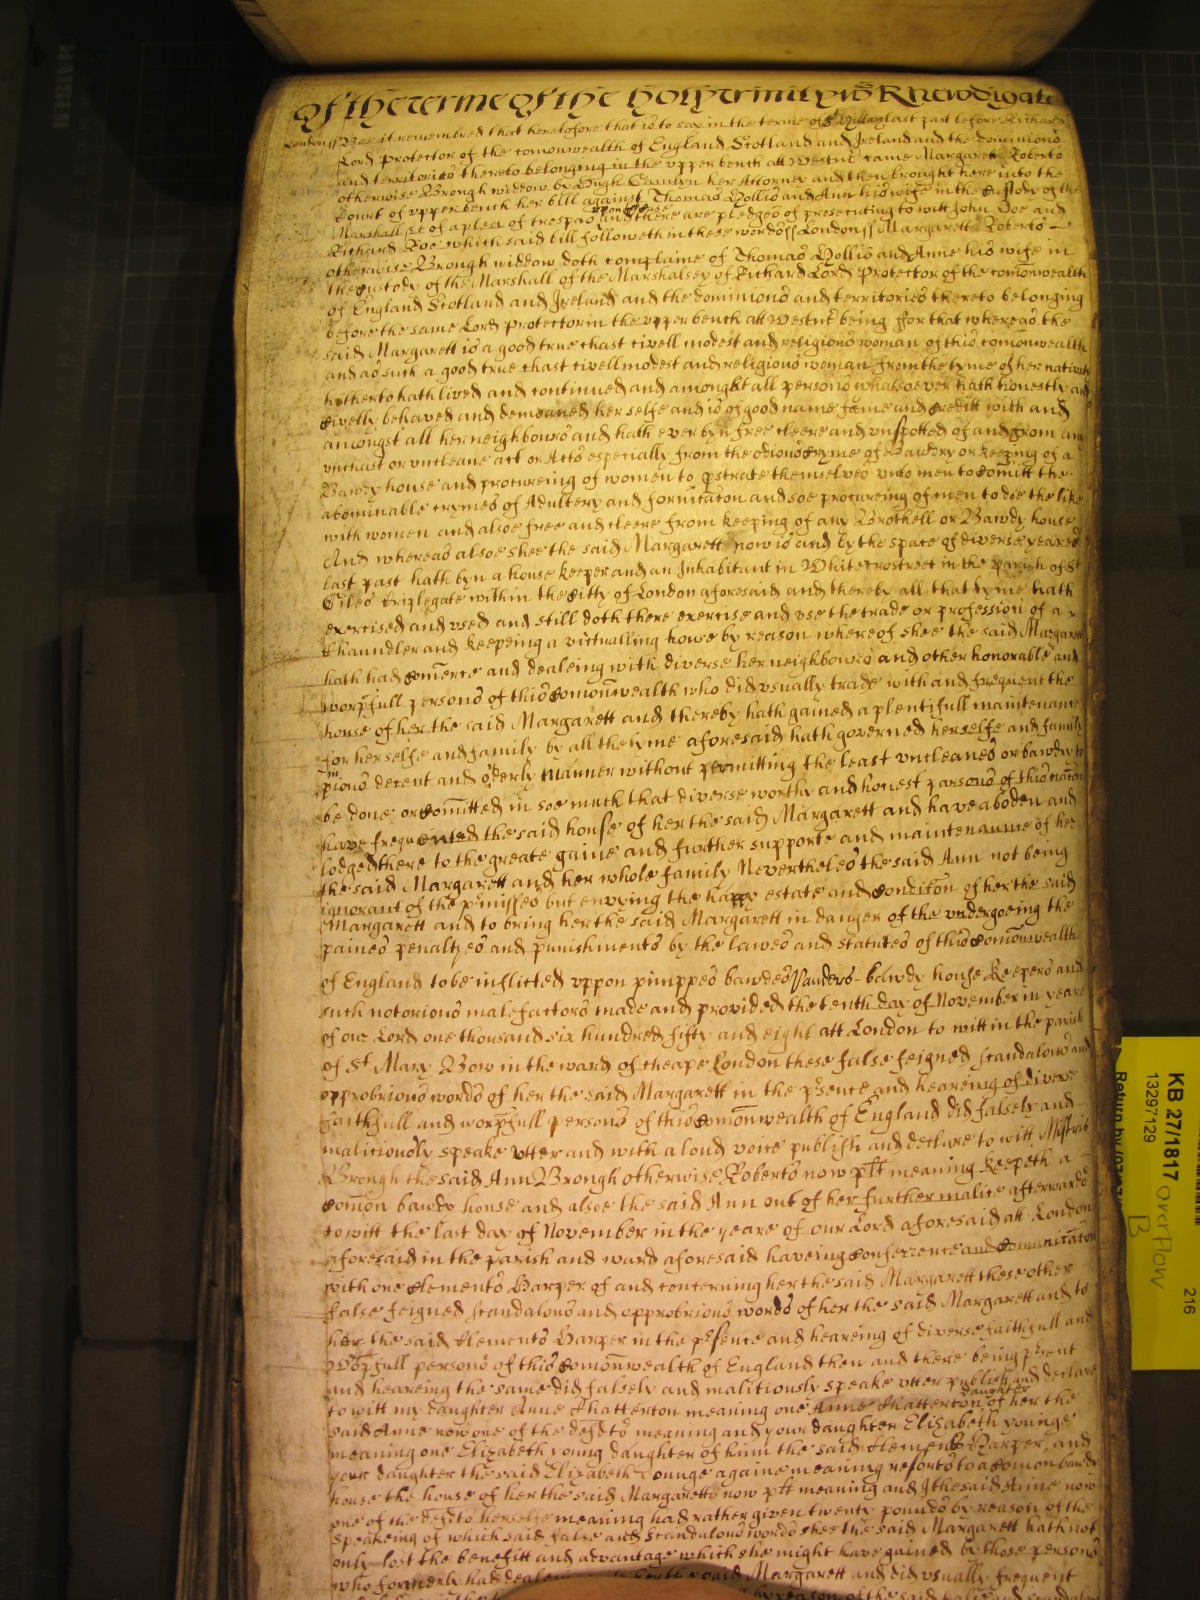 Of the terme of the holy trinity wts R Newdigate
London ss Bee it remembred that heretofore that is to say in the terme of St Hillary last past before Richard
Lord Protector of the comonwealth of England Scotland and Ireland and the dominions
and territories thereto belonging in the upper bench att Westmr came Margarett Roberts
otherwise Brough widdow by Hugh her Attorney and then brought here into the
Court of upper bench her bill against Thomas Hollis and Ann his wife in the Custody of the
Marshall &c of a plea of trespas upon the case and there are pledges of prosecuting to witt John Doe and
Richard Roe which said bill followeth in these words ss London ss Margarett Roberts
otherwise Brough widdow doth complaine of Thomas Hollis and Anne his wife in
the Custody of the Marshall of the Marshalsey of Richard Lord Protector of the comonwealth
of England Scotland and Ireland and the dominions and territories thereto belonging
before the same Lord Protector in the upper bench att Westmr being for that whereas the
said Margarett is a good true chast civell modest and religious woman of this comonwealth
and as such a good true chast civell modest and religious woman from the tyme of her nativity
hitherto hath lived and continued and amongst all persons whatsoever hath honestly and
Civelly behaved and demeaned her selfe and is of good name fame and Creditt with and
amongst all her neighbours and hath ever byn free cleere and unspotted of and from any
unchast or uncleane act or Acts especially from the odious Cryme of Bawdry or keeping of a
Bawdy house and procureing of women to pstrate themselves unto men to Comitt the
abominable crymes of Adultery and fornicaton and soe procureing of men to doe the like
with women and alsoe free and cleere from keeping of any Brothell or Bawdy house
And whereas alsoe shee the said Margarett now is and by the space of diverse yeares
last past hath byn a house keeper and an Inhabitant in Whitecrosstreet in the Parish of St
Giles Criplegate within the Citty of London aforesaid and thereby all that tyme hath
exercised and used and still doth there exercise and use the trade or profession of a
Chaundler and keepeing a victualling house by reason whereof shee the said Margarett
hath had Comerce and dealeing with diverse her neighbours and other honorable and
worpfull persons of this Comonwealth who did usually trade with and frequent the
house of her the said Margarett and thereby hath gained a plentifull maintenance
for herselfe and family by all the tyme aforesaid hath governed herselfe and family
in pious decent and orderly manner without permitting the least uncleanes or bawdry to
be done or Comitted in soe much that diverse worthy and honest parsons of this nation
have frequented the said house of her the said Margarett and have aboden and
lodged there to the greate gaine and further supporte and maintenaunce of her
the said Margarett and her whole family Nevertheles the said Ann not being
ignorant of the pmisses but envying the happy estate and Conditon of her the said
Margarett and to bring her the said Margarett in danger of the undergoeing the
paines penaltyes and punishments by the lawes and statutes of this Comonwealth
of England to be inflicted uppon pimppes bawdes Panders bawdy house keepers and
such notorious malefactors made and provided the tenth day of November in yeare
of our Lord one thousand six hundred fifty and eight att London to witt in the parish
of St Mary Bow in the ward of cheape London these false feigned scandalous and
opprobrious words of her the said Margarett in the psence and heareing of diverse
faithfull and worpfull persons of this Comonwealth of England did falsely and
maliciously speake utter and with a loud voice publish and declare to witt Mistris
Brough the said Ann Brough otherwise Roberts now plt meaning keepeth a
Comon bawdy house and alsoe the said Ann out of her further malice afterwards
to witt the last day of November in the yeare of our Lord aforesaid att London
aforesaid in the parish and ward aforesaid haveing Conferrence and Comunicaton
with one Clements Harper of and concerning her the said Margarett these other
false feigned scandalous and opprobrious words of her the said Margarett and to
her the said Clements Harper in the psence and heareing of diverse faithfull and
worpfull persons of this Comonwealth of England then and there being psent
and heareing the same did falsely and malitiously speake utter publish and declare
to witt my daughter Anne Chatterton meaning one Anne Chatterton daughter of her the
said Anne now one of the defdts meaning and your daughter Elizabeth younge
meaning one Elizabeth young daughter of him the said Clements Harper, and
your daughter the said Elizabeth Younge againe meaning resorts to a Comon bawdy
house the house of her the said Margarett now plt meaning and I the said Anne now
one of the defdts herselfe meaning had rather given twenty pounds by reason of the
speakeing of which said false and scandalous words shee the said Margarett hath not
only lost the benefitt and advantage which she might have gained by those persons
who formerly had dealeing with her the said Margarett and did usually frequent
by reason of the said false and scandalous
KB 27/1817
13297129
overflow
B
216
Return by